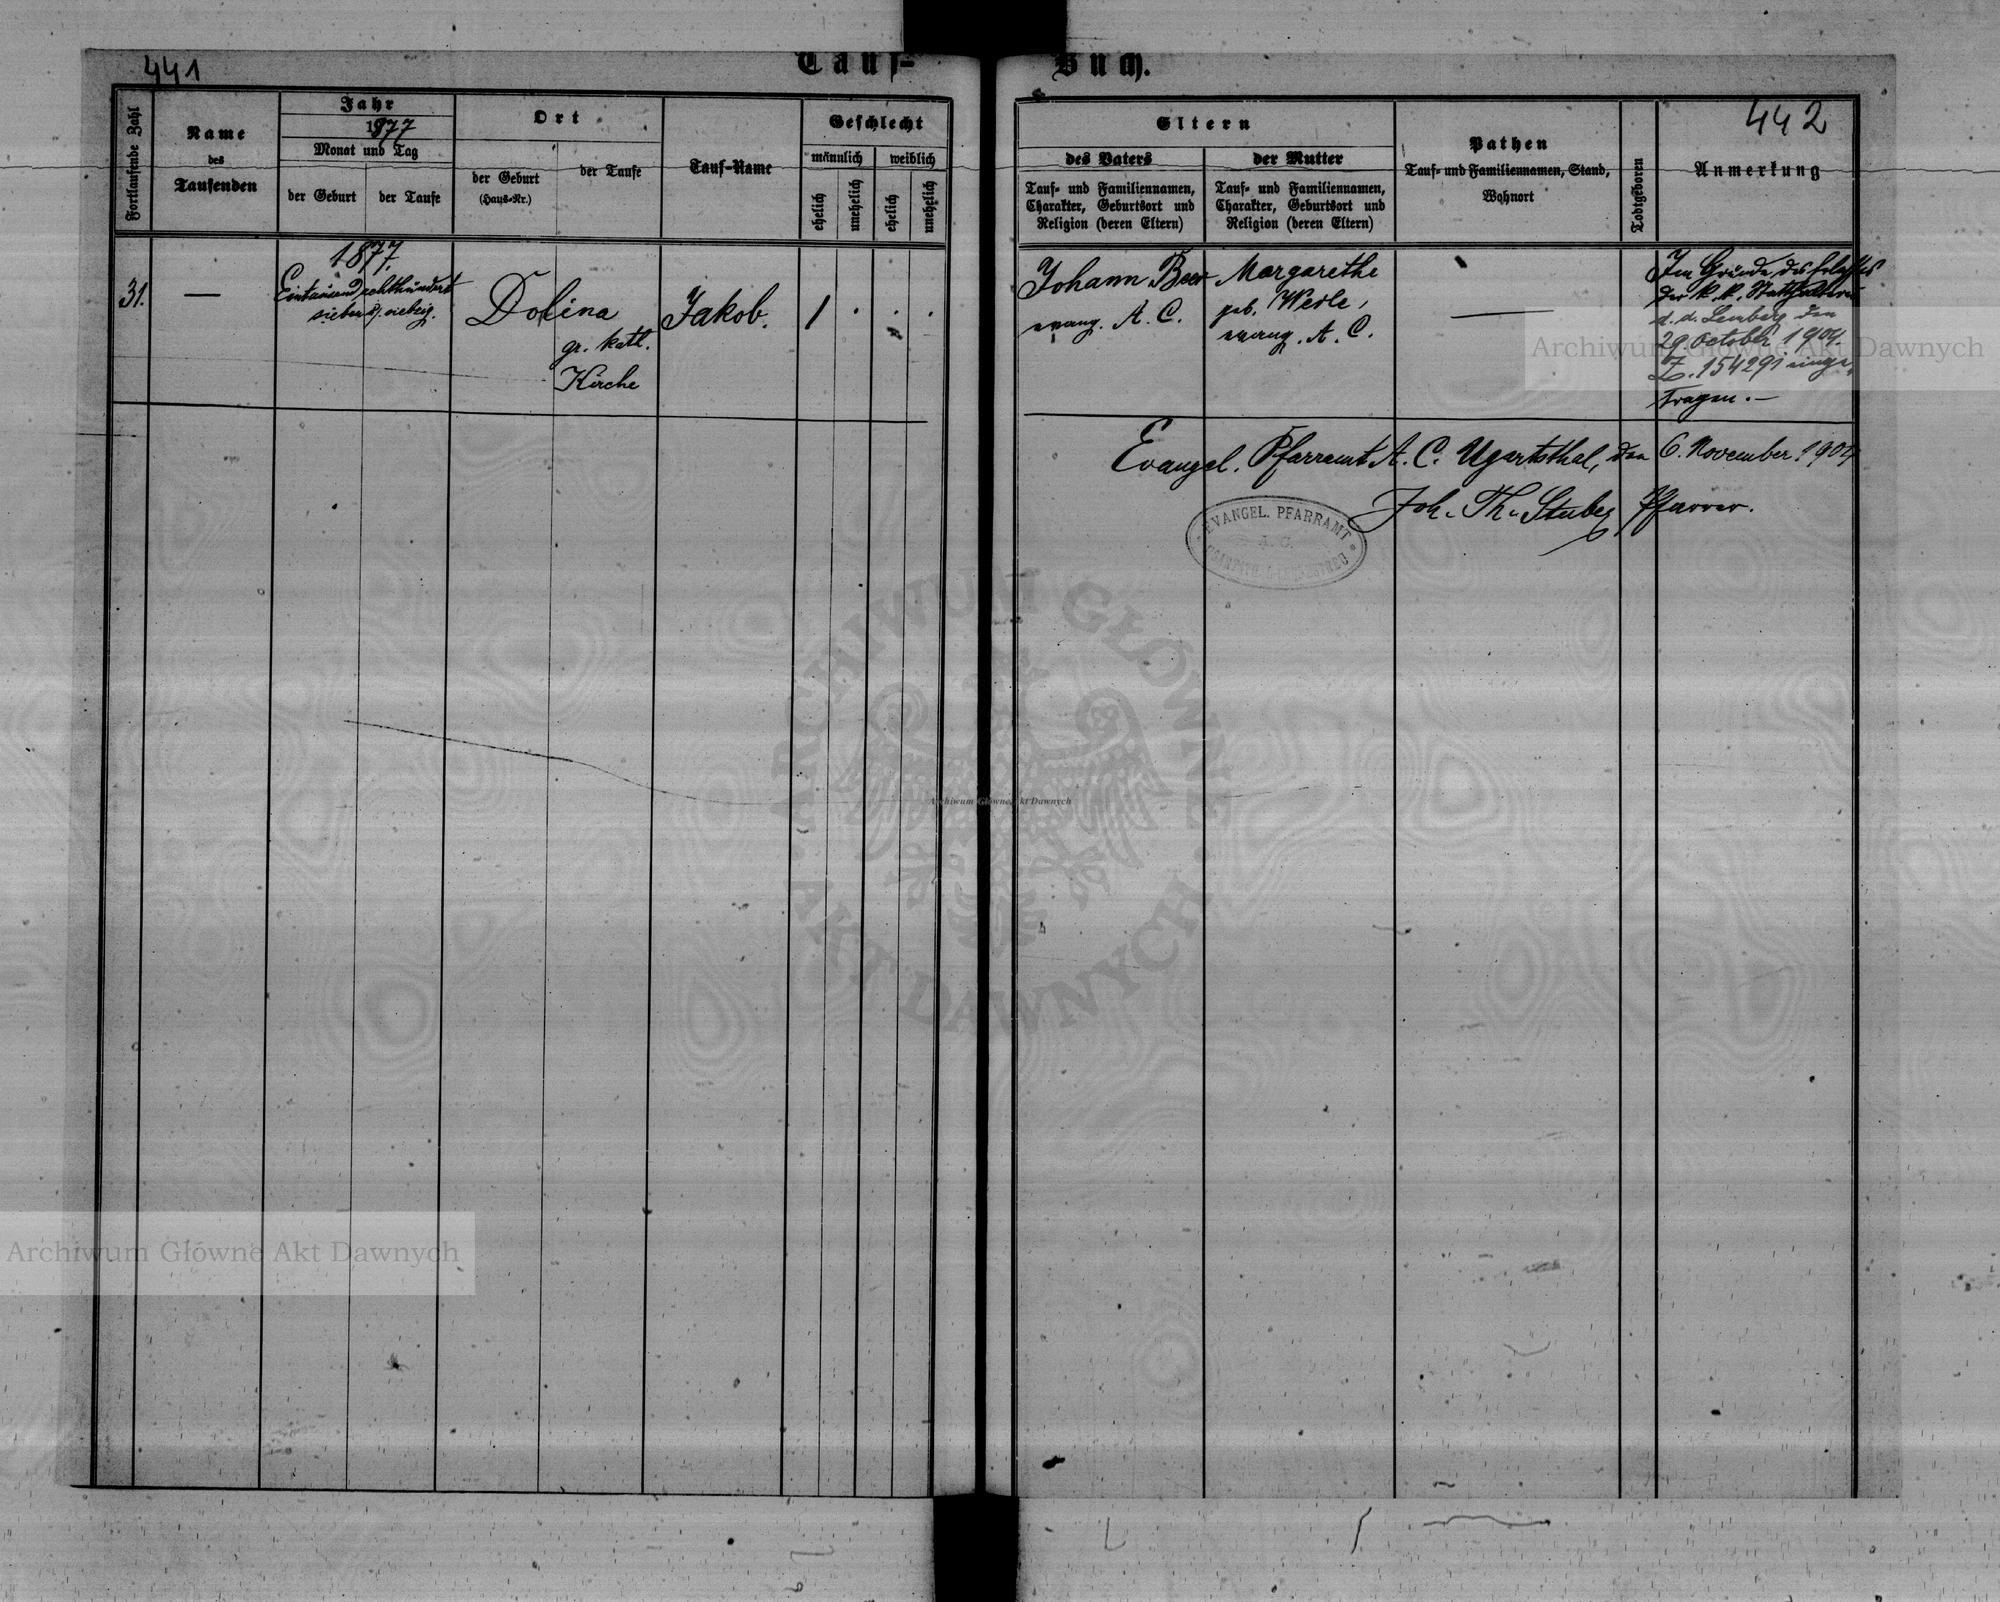 441
Tauf-
Fortlaufende Zahl
Name
des
Taufenden
Jahr
1877
Monat und Tag
der Geburt
der Taufe
Ort
der Geburt
(Haus-Nr.)
der Taufe
Tauf-Name
Geschlecht
männlich
weiblich
ehelich
unehelich
ehelich
unehelich
31.
—
1877.
Eintausend achthundert
sieben u. siebzig.
Dolina
gr. kath.
Kirche
Jakob.
1
.
.
.
Buch.
442
Eltern
des Vaters
Tauf- und Familiennamen,
Charakter, Geburtsort und
Religion (deren Eltern)
der Mutter
Tauf- und Familiennamen,
Charakter, Geburtsort und
Religion (deren Eltern)
Pathen
Tauf- und Familiennamen, Stand,
Wohnort
Todtgeboren
Anmerkung
Johann Beer
evang. A. C.
Margarethe
geb. Werle,
evang. A. C.
—
Im Grunde des Erlasses
der k. k. Statthalterei
d. d. Lemberg den
29 October 1904.
Z. 154291 einge-
tragen. —
Evangel. Pfarramt A. C. Ugartsthal, den 6. November 1904
Joh. Th. Stuber Pfarrer.
EVANGEL. PFARRAMT
A. C.
Archiwum Główne Akt Dawnych
ARCHIWUM GŁÓWNE
AKT DAWNYCH
Archiwum Główne Akt Dawnych
Archiwum Główne Akt Dawnych